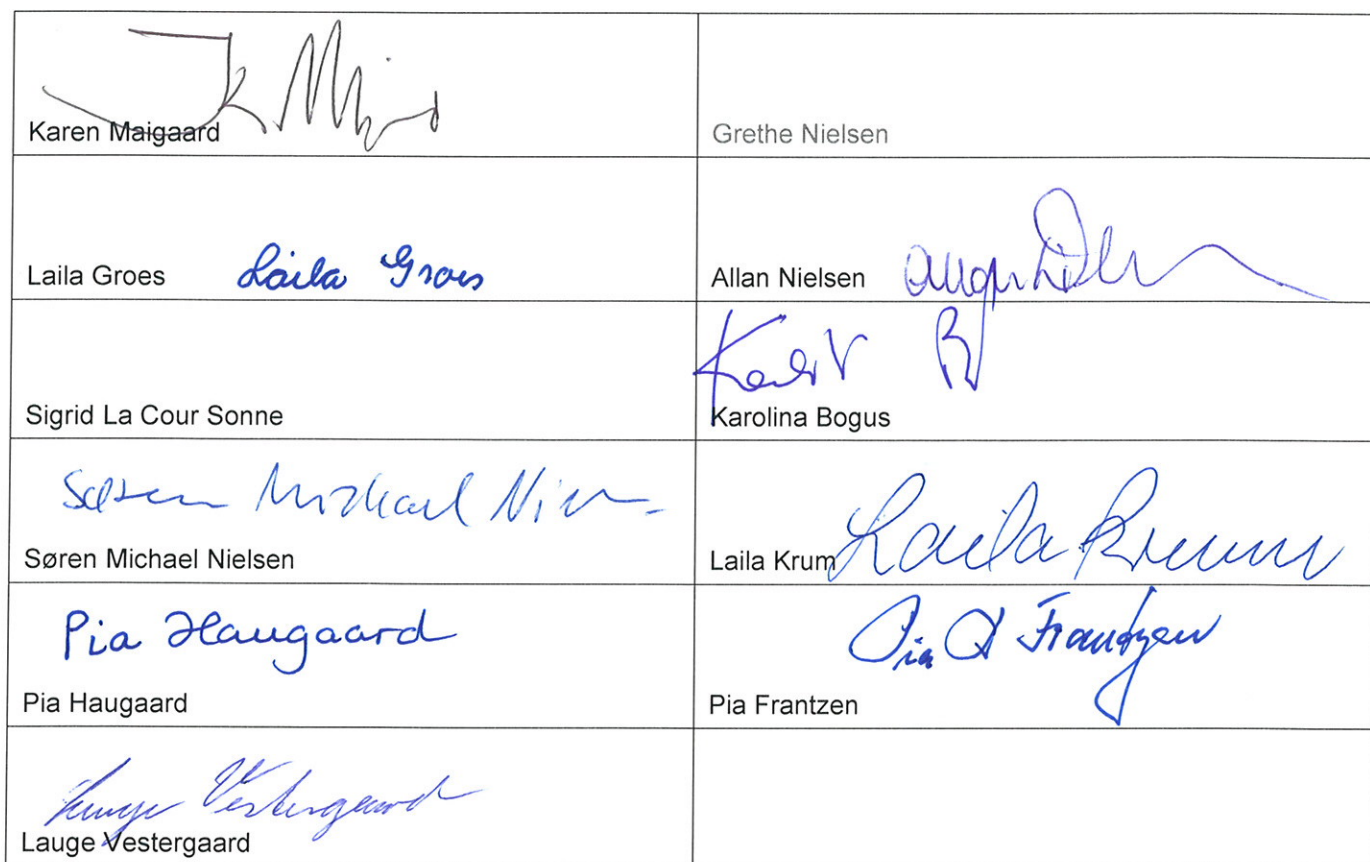 Karen Maigaard
Grethe Nielsen
Laila Groes Laila Groes
Allan Nielsen
Sigrid La Cour Sonne
Karolina Bogus
Søren Michael Nielsen
Laila Krum Laila Krum
Pia Haugaard
Pia Haugaard
Pia Frantzen
Pia Frantzen
Lauge Vestergaard
Lauge Vestergaard